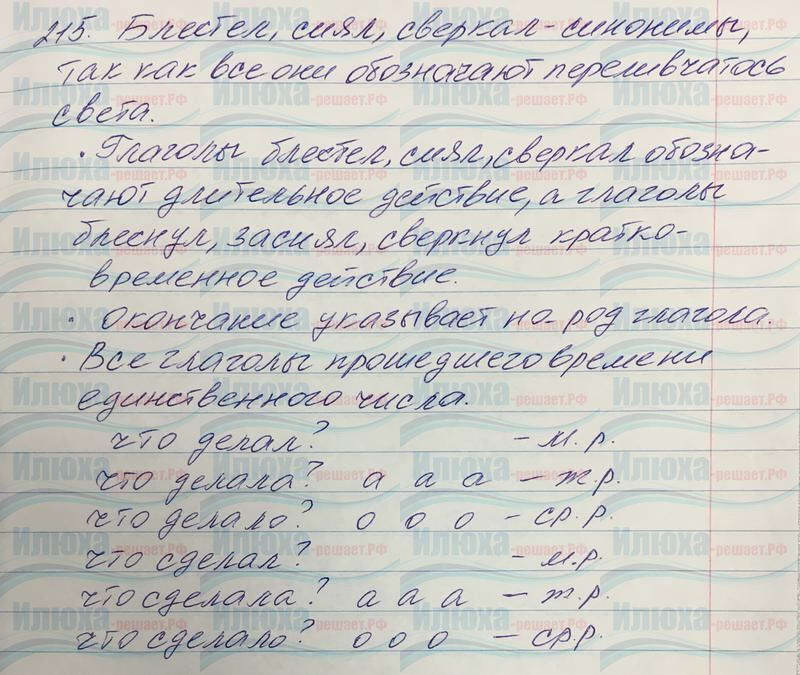 215. Блестел, сиял, сверкал - синонимы,
так как все они обозначают переливчатось
света.
· Глаголы блестел, сиял, сверкал обозна-
чают длительное действие, а глаголы
блеснул, засиял, сверкнул кратко-
временное действие.
· Окончание указывает на род глагола.
· Все глаголы прошедшего времени
единственного числа.
что делал? - м.р.
что делала? а а а - ж.р.
что делало? о о о - ср.р.
что сделал? - м.р.
что сделала? а а а - ж.р.
что сделало? о о о - ср.р.
Илюха-решает.РФ